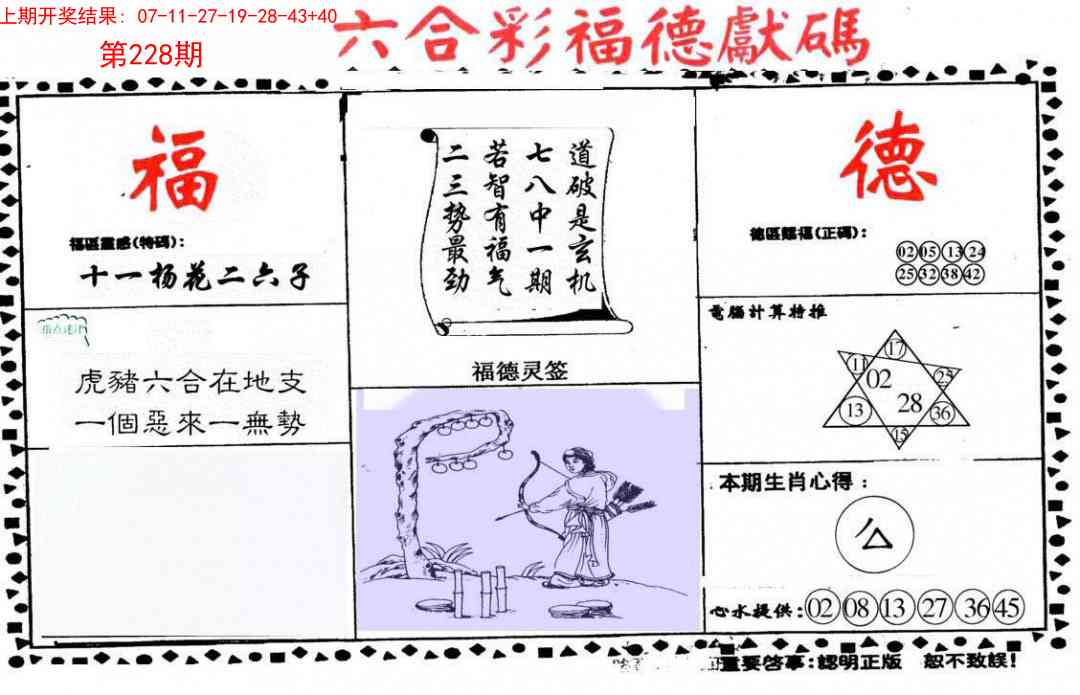 上期开奖结果：07-11-27-19-28-43+40
第228期
六合彩福德獻碼
福
福區靈感(特碼)：
十一杨花二六子
虎豬六合在地支
一個惡來一無勢
道破是玄机
七八中一期
若智有福气
二三势最劲
福德灵签
德
(正碼)：
02 05 13 24
25 32 38 42
電腦計算特推
17
11
02
25
28
13
36
15
本期生肖心得：
心水提供：02 08 13 27 36 45
重要啓事：認明正版 恕不致誤！